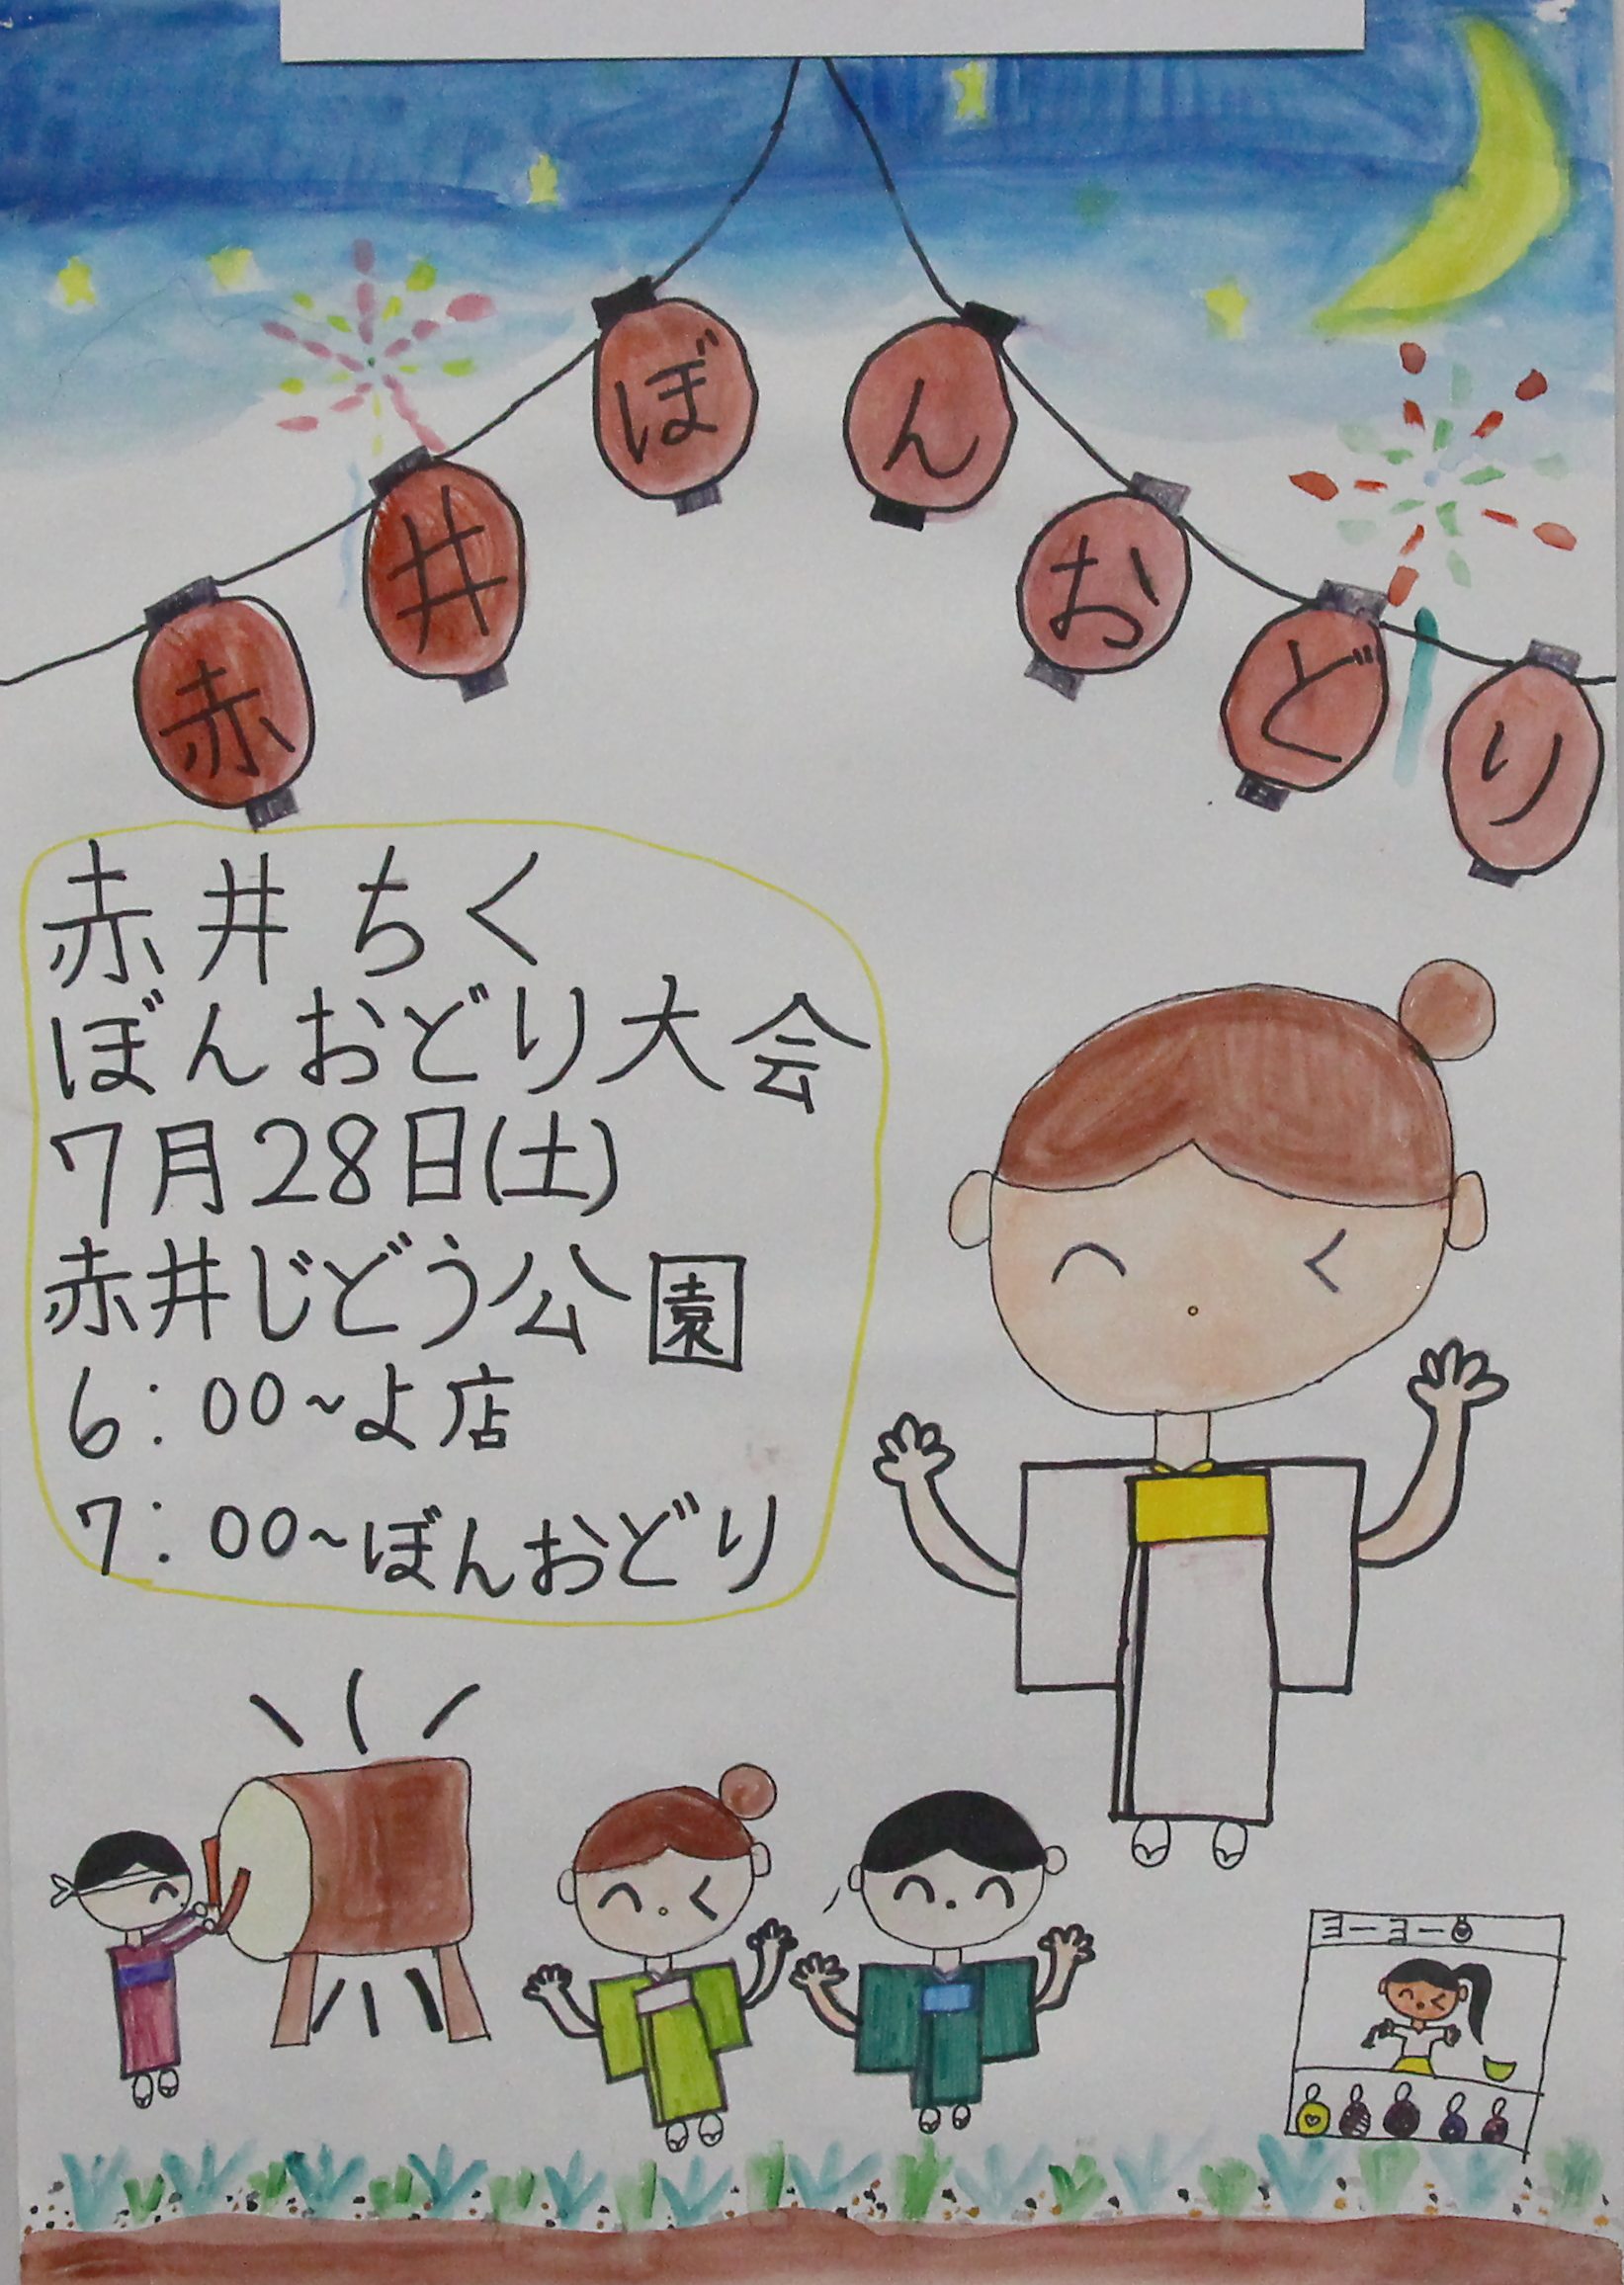 赤井ぼんおどり
赤井ちく
ぼんおどり大会
7月28日(土)
赤井じどう公園
6:00~よ店
7:00~ぼんおどり
ヨーヨー